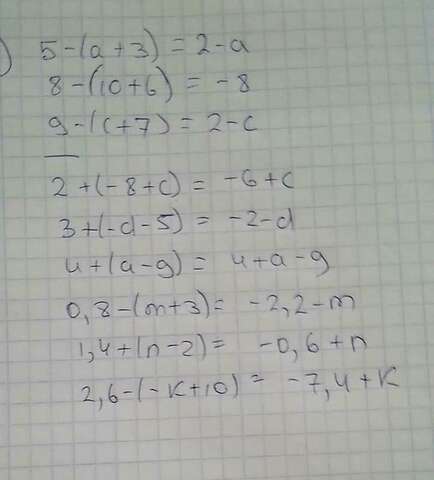 ) 5-(a+3)=2-a
8-(10+6)=-8
9-(c+7)=2-c
2+(-8+c)=-6+c
3+(-d-5)=-2-d
4+(a-g)=4+a-g
0,8-(m+3)=-2,2-m
1,4+(n-2)=-0,6+n
2,6-(-k+10)=-7,4+k